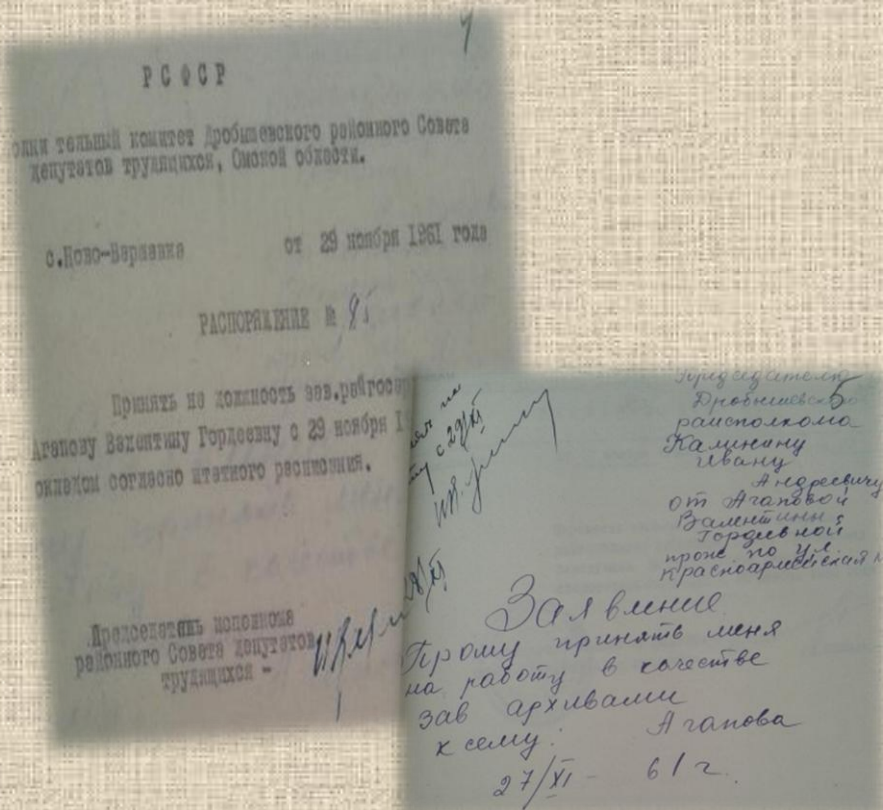 РСФСР
тельный комитет Дробышевского районного Совета
депутатов трудящихся, Омской области.
с.Ново-Варшавка от 29 ноября 1961 года
РАСПОРЯЖЕНИЕ №
Принять на должность зав.райгосар
Агапову Валентину Гордеевну с 29 ноября 1
окладом согласно штатного расписания.
Председатель исполкома
районного Совета депутатов
трудящихся -
5
Председателю
Дробышевского
райисполкома
Калинину
Ивану
Андреевичу
от Агаповой
Валентины
Гордеевной
прож по ул.
Красноармейская
Заявление
Прошу принять меня
на работу в качестве
зав архивами
к сему: Агапова
27/XI - 61 г.